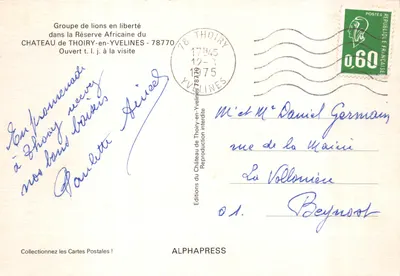 Groupe de lions en liberté
dans la Réserve Africaine du
CHATEAU de THOIRY-en-YVELINES - 78770
Ouvert t. l. j. à la visite
En promenade
à Thoiry recevez
nos bons baisers
Paulette
78 THOIRY
1975
YVELINES
POSTES
REPUBLIQUE FRANÇAISE
0,60
Editions du Château de Thoiry-en-Yvelines 78770
Reproduction interdite
Mr et Me Daniel Germain
rue de la Mairie
La
01. Beynost
Collectionnez les Cartes Postales !
ALPHAPRESS